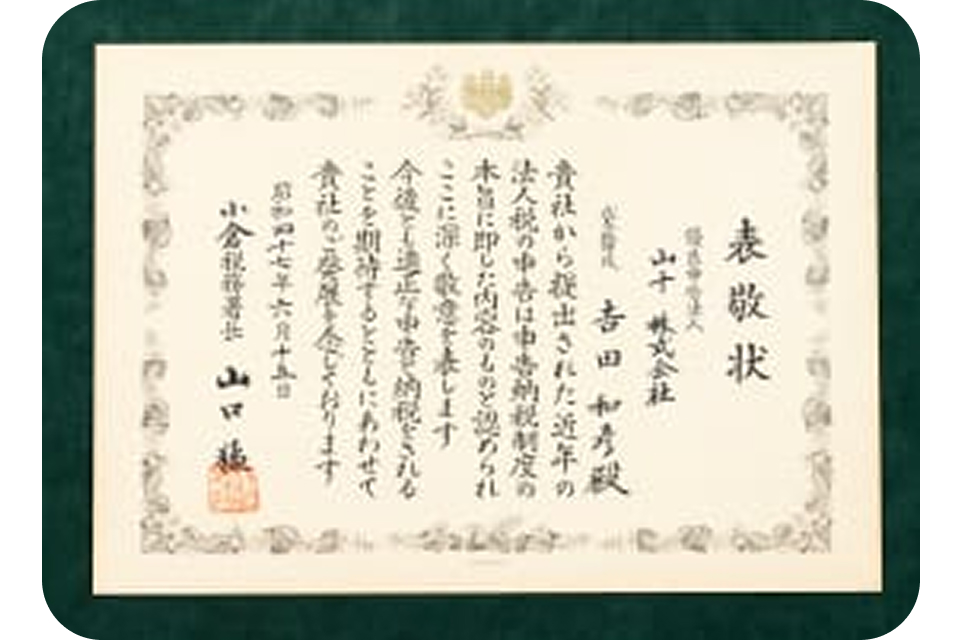 表敬状
優良申告法人
山十 株式会社
代表取締役 吉田 和彦 殿
貴社から提出された近年の
法人税の申告は申告納税制度の
本旨に即した内容のものと認められ
ここに深く敬意を表します
今後とも適正な申告と納税をされる
ことを期待するとともにあわせて
貴社のご発展を念じております
昭和四十七年六月十五日
小倉税務署長 山口